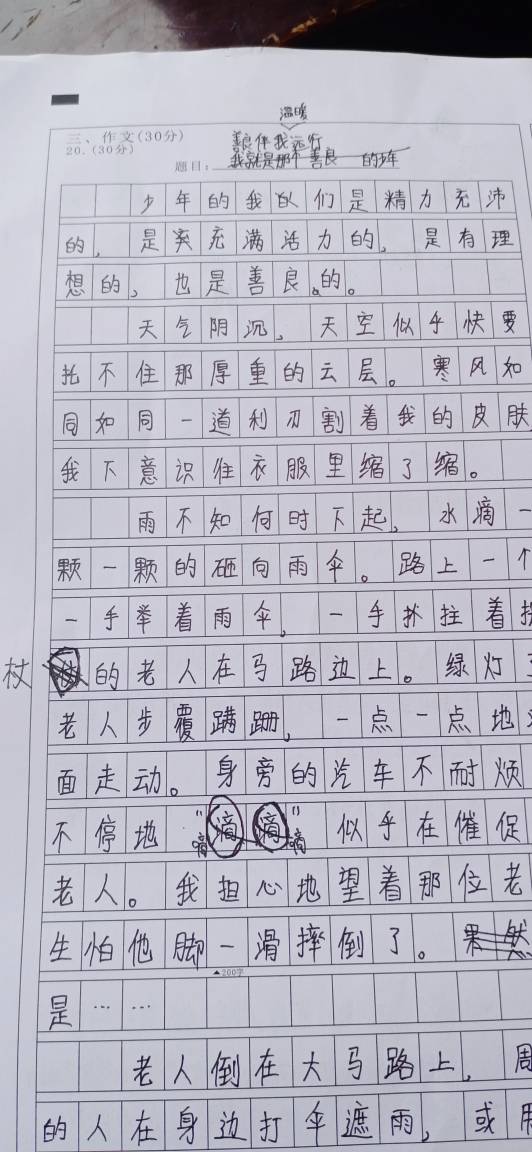 温暖
三、作文(30分)
善良伴我远行
20.(30分)
题目：我就是那个善良的少年
少年的我们是精力充沛
的，是充满活力的，是有理
想的，也是善良的。
天气阴沉，天空似乎快要
托不住那厚重的云层。寒风如
同如同一道利刃割着我的皮肤
我下意识往衣服里缩了缩。
雨不知何时下起，水滴一
颗一颗的砸向雨伞。路上一个
一手举着雨伞，一手扒拄着拐
杖的老人在马路边上。绿灯
老人步覆蹒跚，一点一点地
面走动。身旁的汽车不耐烦
不停地“嘀嘀”似乎在催促
老人。我担心地望着那位老
生怕他脚一滑摔倒了。果然
▲200字
是……
老人倒在大马路上，周
的人在身边打伞遮雨，或